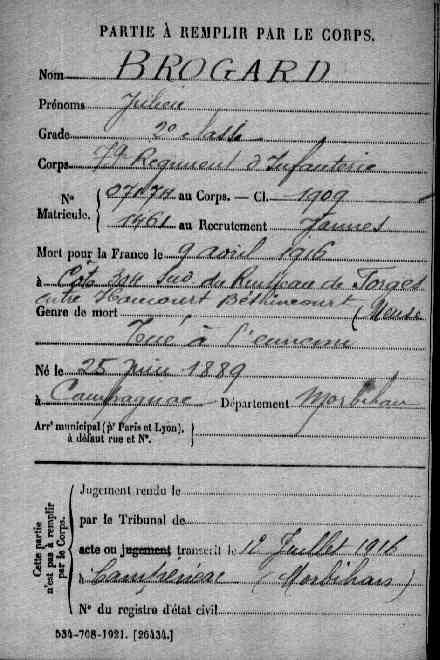 PARTIE À REMPLIR PAR LE CORPS.
Nom BROGARD
Prénoms Julien
Grade 2e classe
Corps 79 Regiment d'Infanterie
N° Matricule. { au Corps. — Cl. 1909
1461 au Recrutement Vannes
Mort pour la France le 9 avril 1916
à Côte 304 Sud du Ruisseau de Forges
entre Haucourt Béthincourt (Meuse
Genre de mort
Tué à l'ennemi
Né le 25 Juin 1889
à Département Morbihan
Arrt municipal (pr Paris et Lyon), à défaut rue et N°. }
Cette partie n'est pas à remplir par le Corps.
Jugement rendu le
par le Tribunal de
acte ou jugement transcrit le 12 Juillet 1916
à (Morbihan)
N° du registre d'état civil
534-708-1921. [26434.]